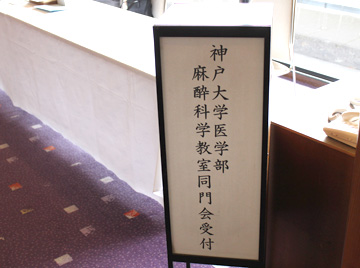 神戸大学医学部
麻酔科学教室同門会受付